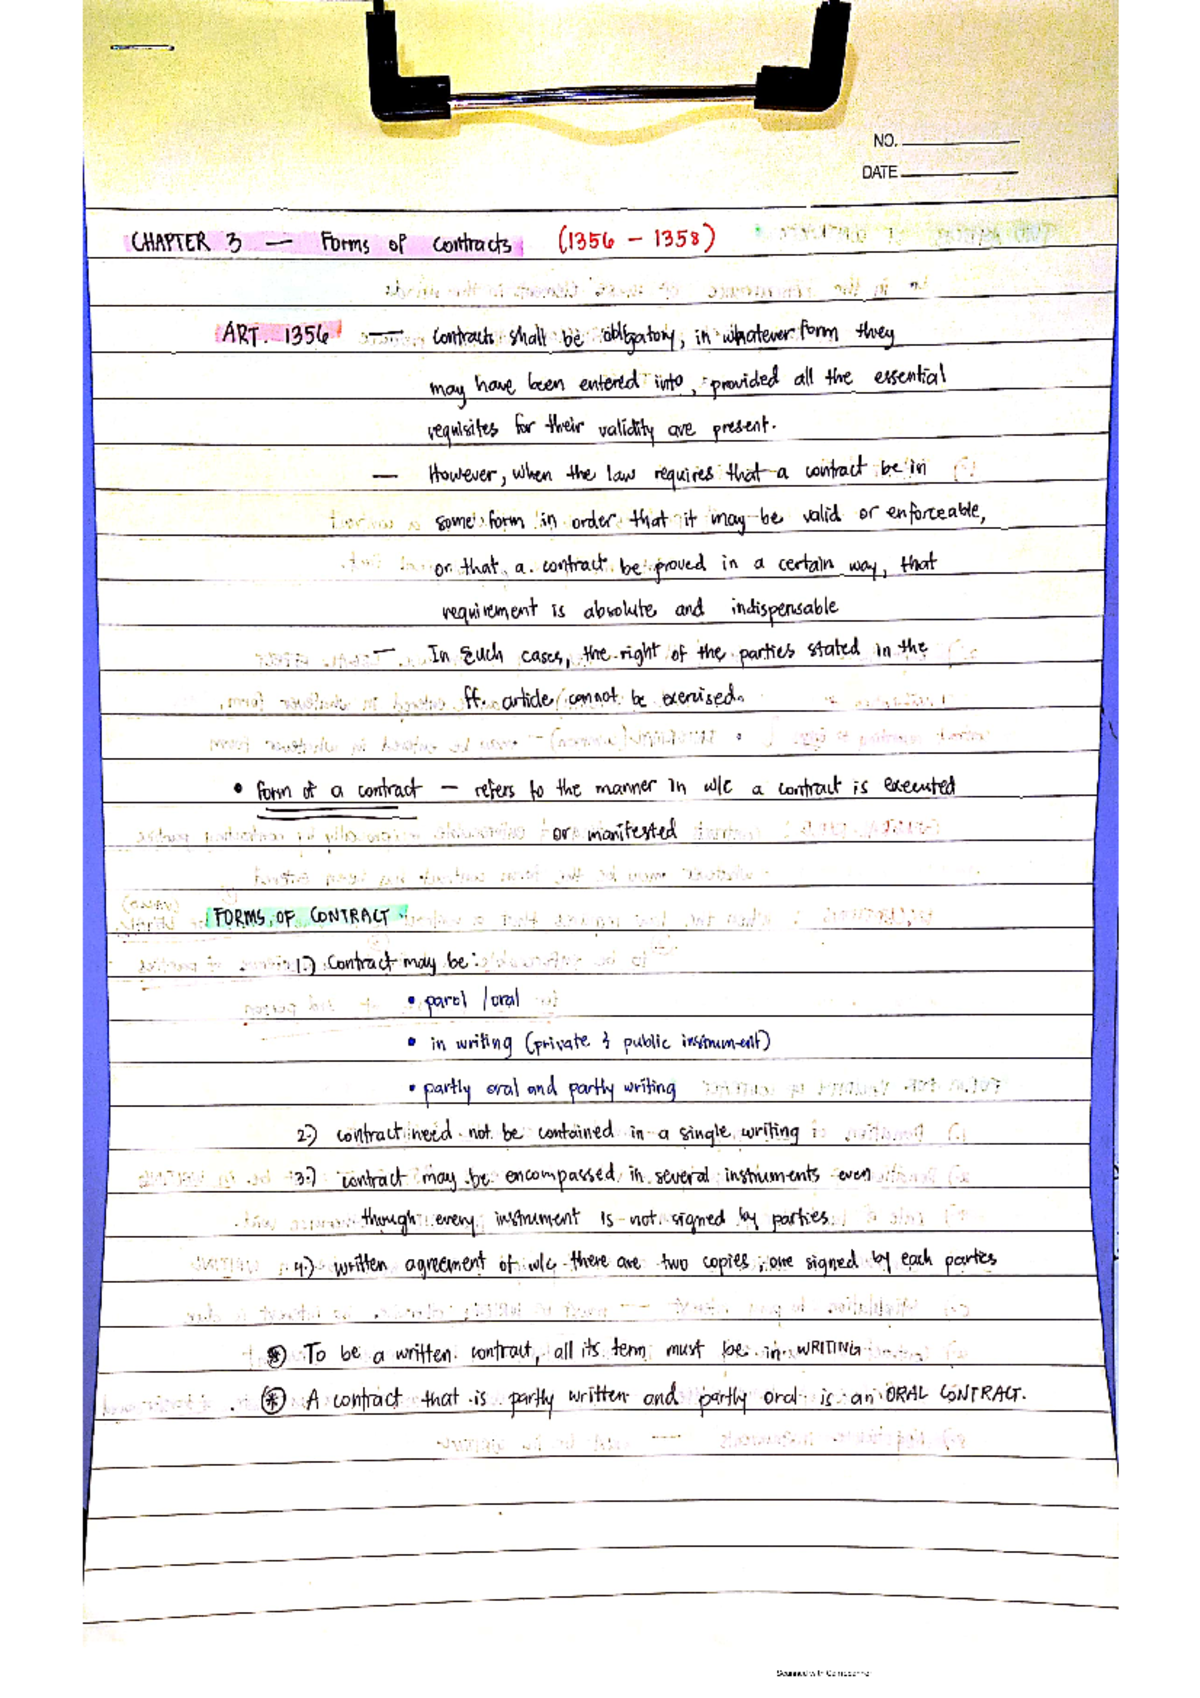 NO.
DATE
CHAPTER 3 — Forms of Contracts (1356 – 1358)
ART. 1356 — Contracts shall be obligatory, in whatever form they
may have been entered into, provided all the essential
requisites for their validity are present.
— However, when the law requires that a contract be in
some form in order that it may be valid or enforceable,
or that a contract be proved in a certain way, that
requirement is absolute and indispensable
— In such cases, the right of the parties stated in the
ff. article cannot be exercised.
• form of a contract — refers to the manner in w/c a contract is executed
or manifested
FORMS OF CONTRACT
1.) Contract may be:
• parol /oral
• in writing (private & public instrument)
• partly oral and partly writing
2.) contract need not be contained in a single writing
3.) contract may be encompassed in several instruments even
though every instrument is not signed by parties
4.) written agreement of w/c there are two copies, one signed by each parties
* To be a written contract, all its term must be in WRITING
* A contract that is partly written and partly oral is an ORAL CONTRACT.
Scanned with CamScanner